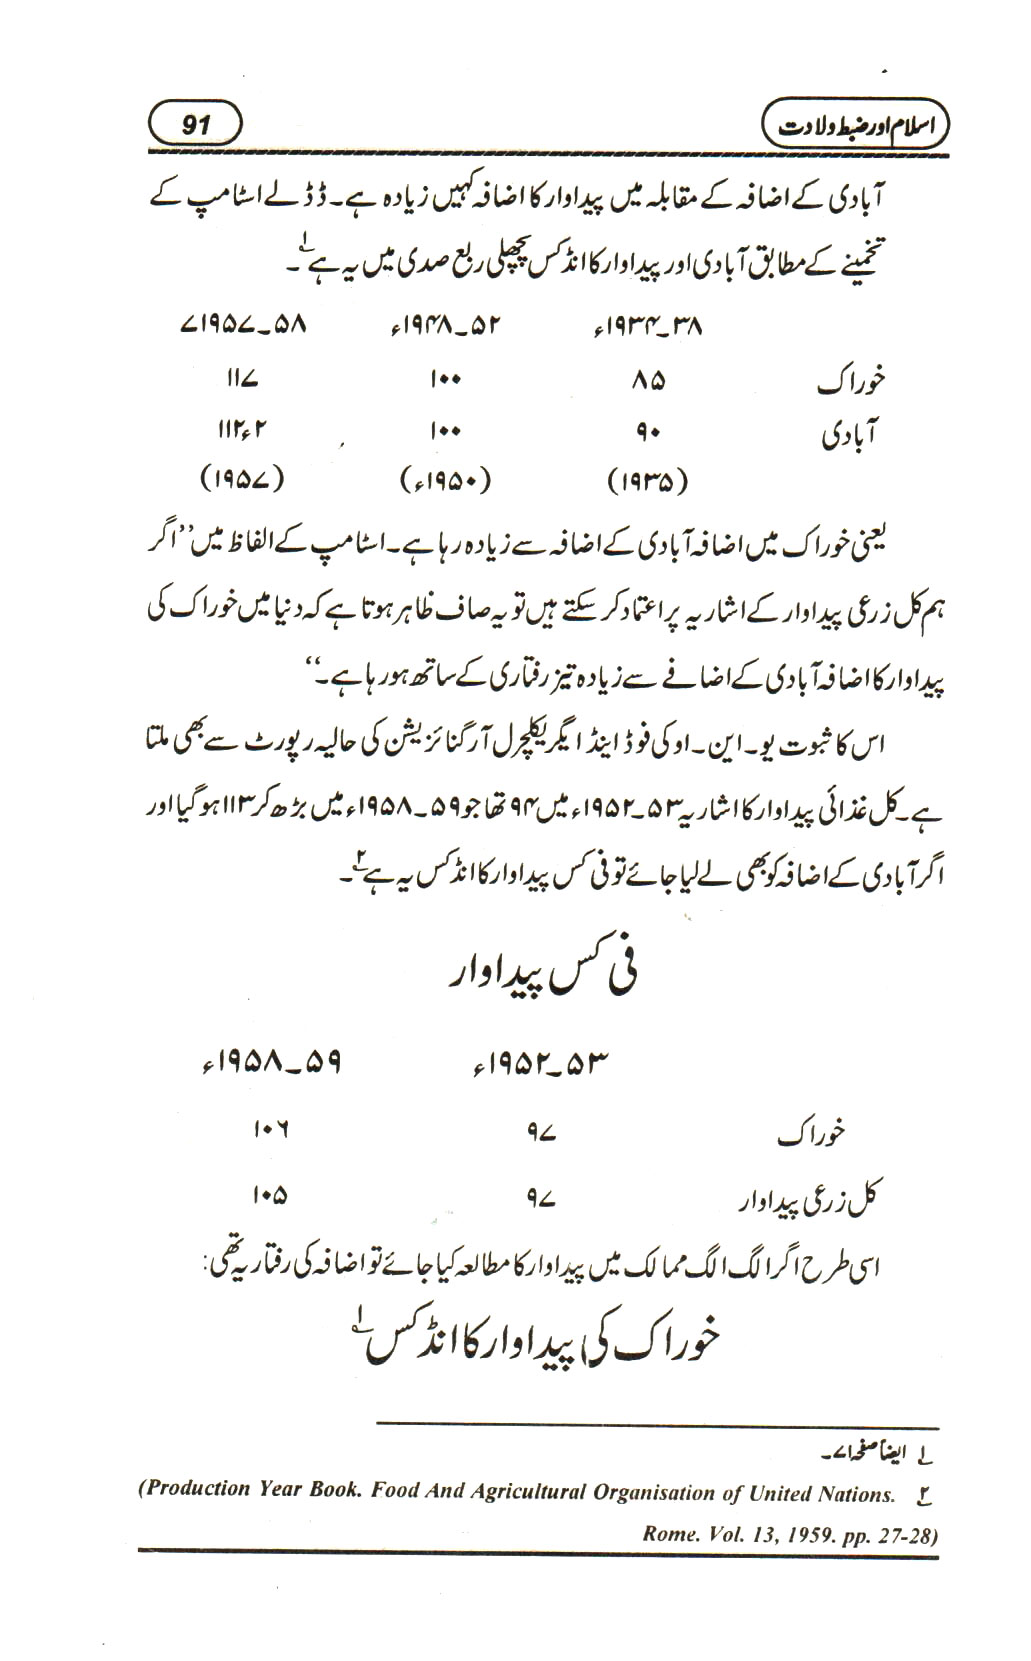 اسلام اور ضبط ولادت
91
آبادی کے اضافہ کے مقابلہ میں پیداوار کا اضافہ کہیں زیادہ ہے۔ ڈڈلے اسٹامپ کے
تخمینے کے مطابق آبادی اور پیداوار کا انڈکس پچھلی ربع صدی میں یہ ہے۱؎۔
۳۸۔۱۹۳۴ء ۵۲۔۱۹۴۸ء ۵۸۔۱۹۵۷ے
خوراک ۸۵ ۱۰۰ ۱۱۷
آبادی ۹۰ ۱۰۰ ۱۱۲ء۲
(۱۹۳۵) (۱۹۵۰ء) (۱۹۵۷)
یعنی خوراک میں اضافہ آبادی کے اضافہ سے زیادہ رہا ہے۔ اسٹامپ کے الفاظ میں ’’اگر
ہم کل زرعی پیداوار کے اشاریہ پر اعتماد کر سکتے ہیں تو یہ صاف ظاہر ہوتا ہے کہ دنیا میں خوراک کی
پیداوار کا اضافہ آبادی کے اضافے سے زیادہ تیز رفتاری کے ساتھ ہو رہا ہے۔‘‘
اس کا ثبوت یو۔ این۔ او کی فوڈ اینڈ ایگریکلچرل آرگنائزیشن کی حالیہ رپورٹ سے بھی ملتا
ہے۔ کل غذائی پیداوار کا اشاریہ ۵۳۔۱۹۵۲ء میں ۹۴ تھا جو ۵۹۔۱۹۵۸ء میں بڑھ کر ۱۱۳ ہو گیا اور
اگر آبادی کے اضافہ کو بھی لے لیا جائے تو فی کس پیداوار کا انڈکس یہ ہے۲؎۔
فی کس پیداوار
۵۳۔۱۹۵۲ء ۵۹۔۱۹۵۸ء
خوراک ۹۷ ۱۰۶
کل زرعی پیداوار ۹۷ ۱۰۵
اسی طرح اگر الگ الگ ممالک میں پیداوار کا مطالعہ کیا جائے تو اضافہ کی رفتار یہ تھی:
خوراک کی پیداوار کا انڈکس۱؎
۱؎ ایضاً صفحہ ۷۱۔
۲؎ (Production Year Book. Food And Agricultural Organisation of United Nations.
Rome. Vol. 13, 1959. pp. 27-28)